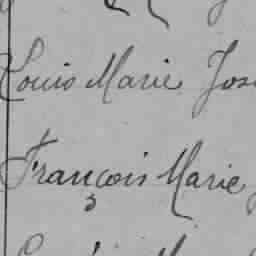 Louis Marie Jos
François Marie